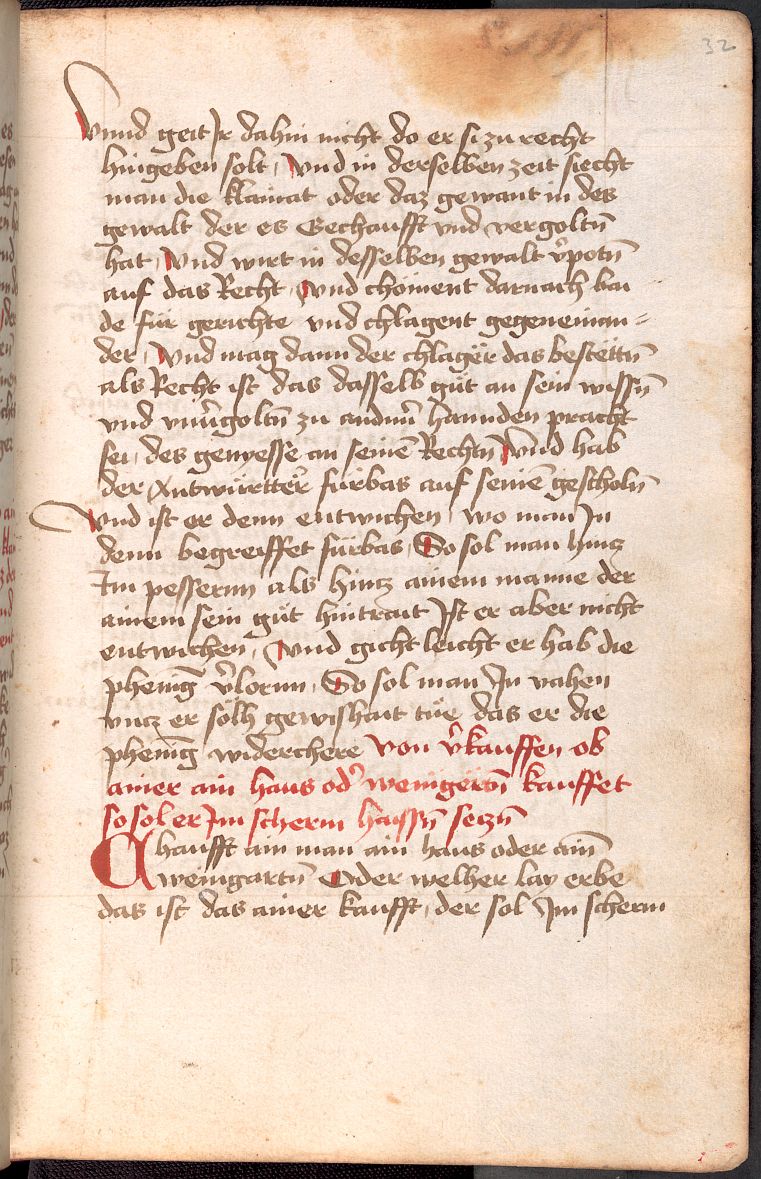 32
Vnnd geit Ir dahin nicht do er si zu recht
hingeben solt, Vnd in derselben zeit siecht
man die klainat oder daz gewant in des
gewalt der es Gechaufft vnd vergoltn̄
hat, Vnd wirt in desselben gewalt v̄potn̄
auf das Recht, Vnd choment darnach bai
de für gerichte vnd chlagent gegeneinan=
der, Vnd mag dann der chlagër das bestëttn̄
als Recht ist das dasselb gůt an sein wissn̄
vnd vnu̕goltn̄ zu andnn̕ hannden pracht
sei, des genyesse an seinē Rechtn̄ Vnd hab
der Antwürttër fürbas auf seinē gescholn̄
Vnd ist er denn entwichen, wo man In
denn begreiffet fürbas, So sol man hincz
Im pessernn als hincz ainem manne der
ainem sein gůt hintrait Ist er aber nicht
entwichen, Vnd gicht leicht er hab die
phenīg v̄lornn, So sol man In vahen
vncz er sölh gewishait tüe das er die
phenīg widerchere Von v̄kauffen ob
ainer ain haus od̕ weingërtn̄ kauffet
so sol er Im scherm haissn̄ seczn̄
Chaufft ain man ain haus oder ain̄
weingartn̄ Oder welher lay erbe
das ist das ainer kaufft, der sol Im scherm